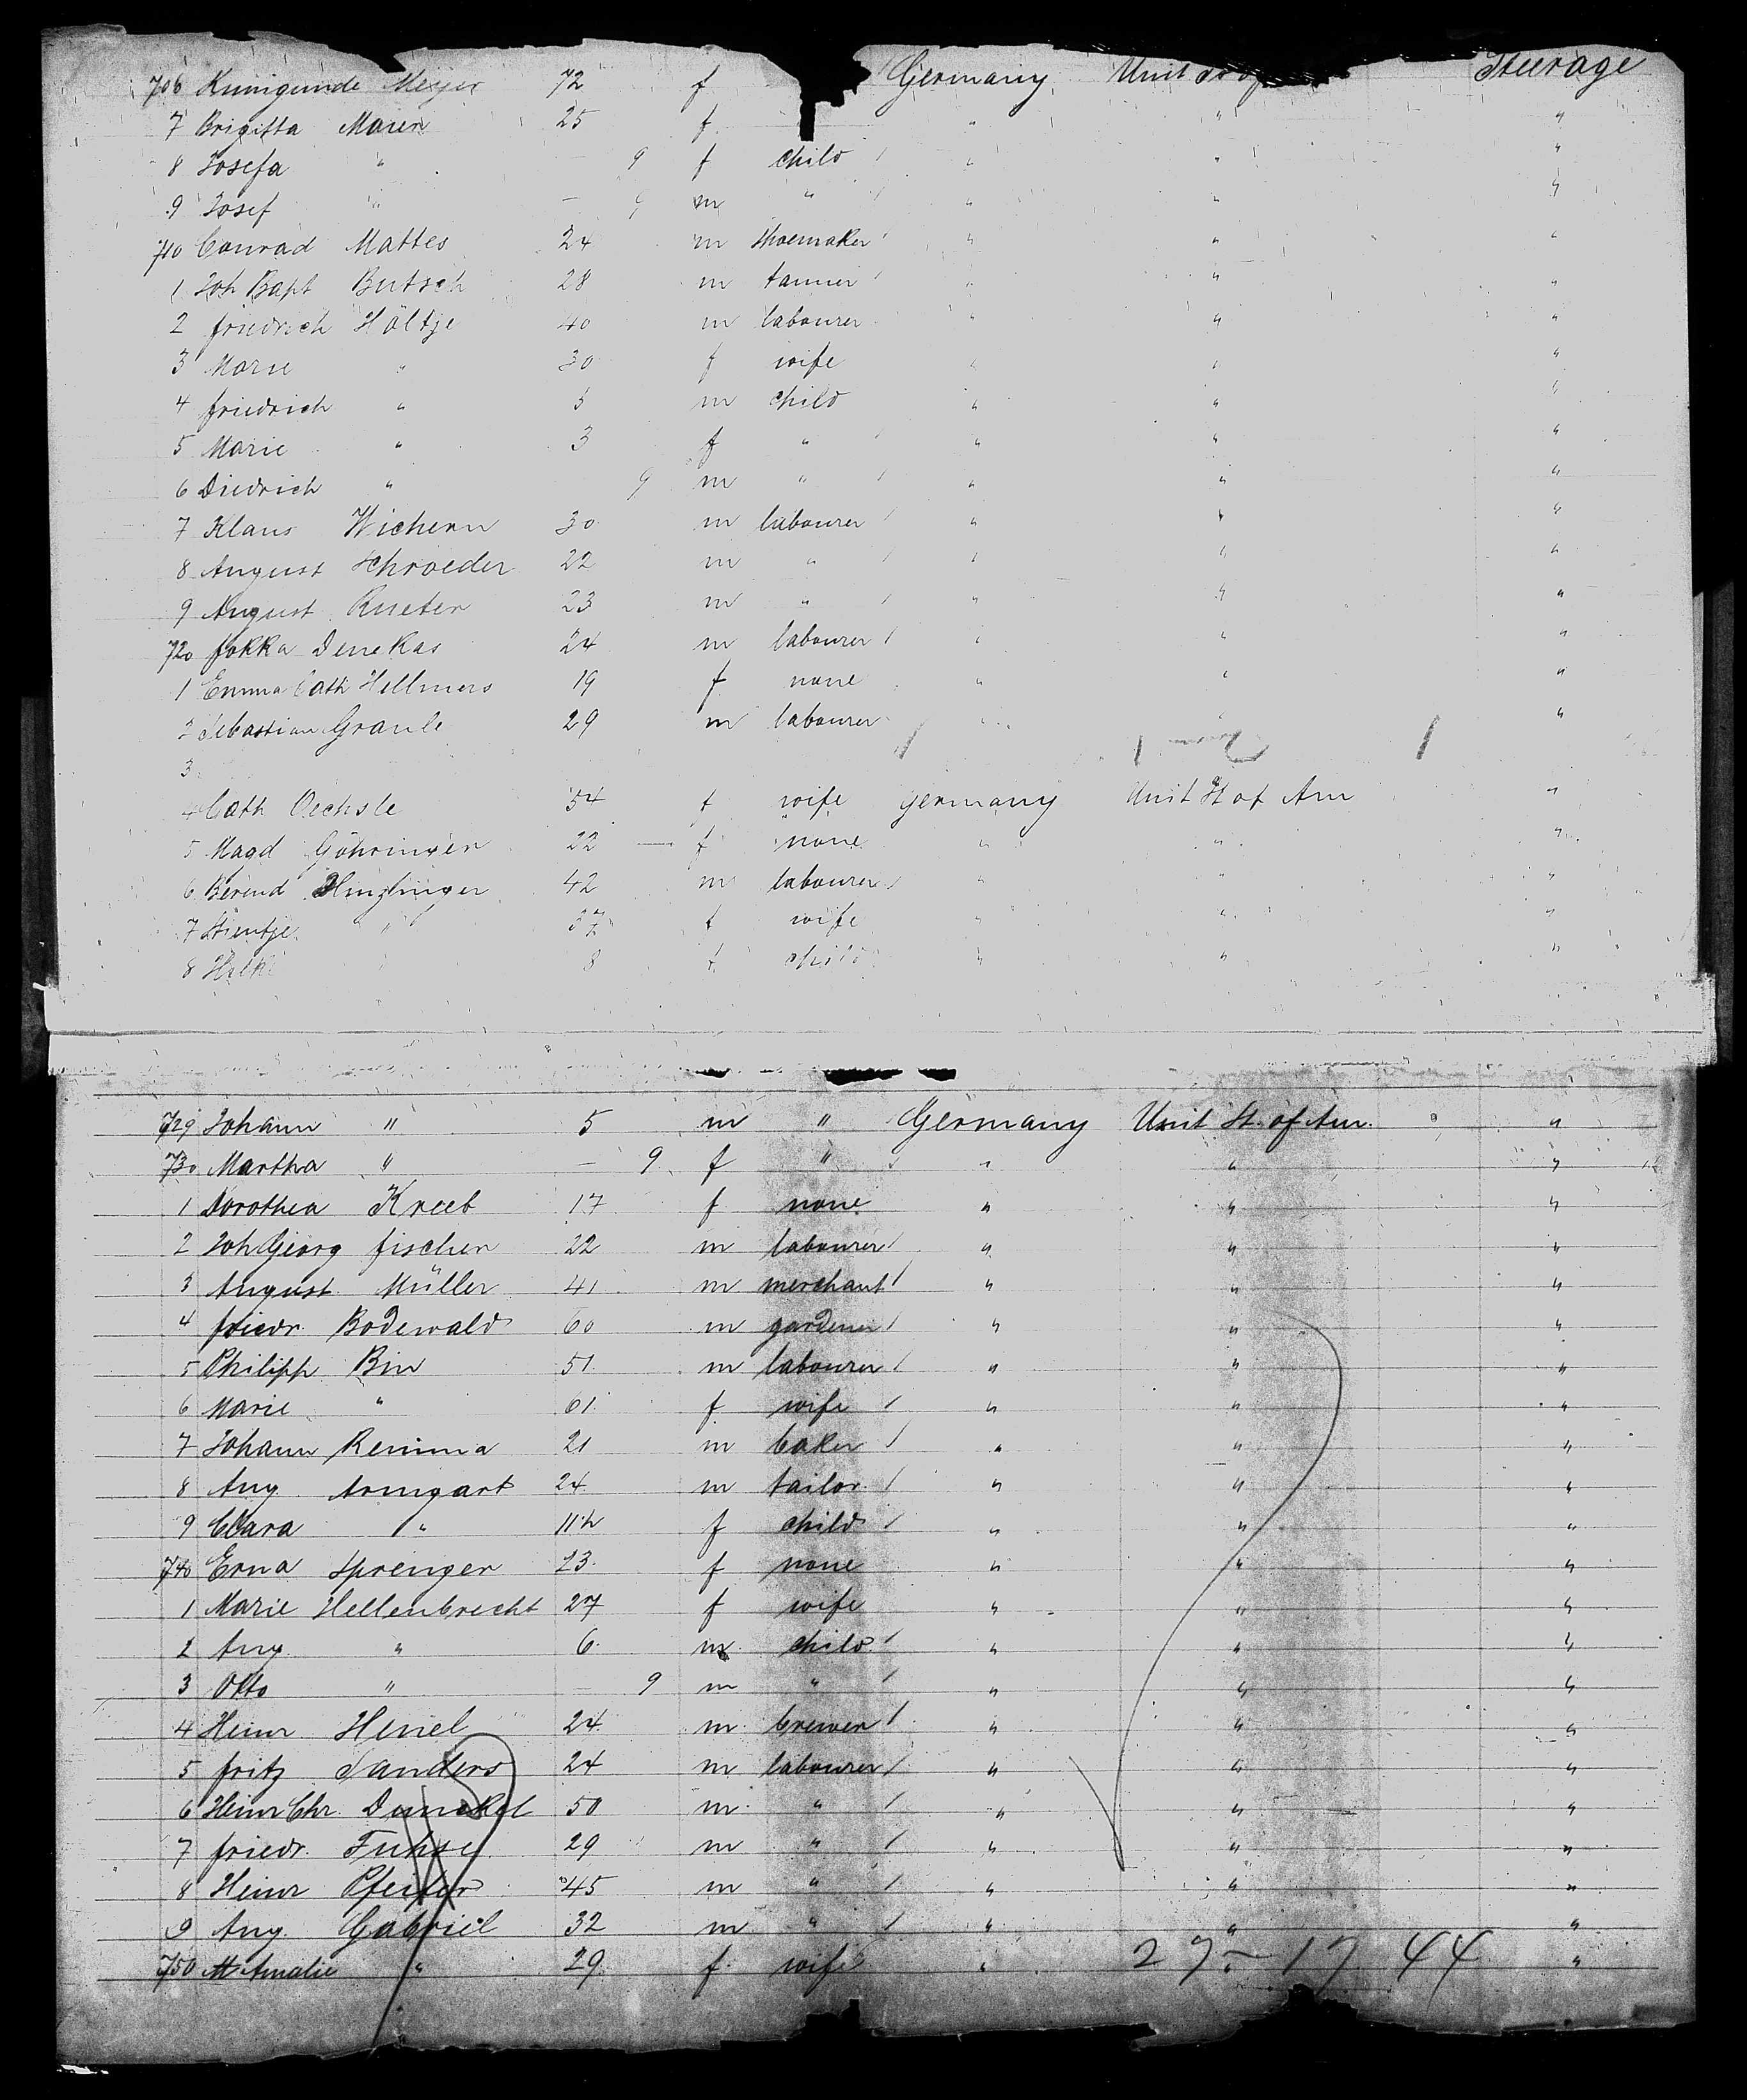 706 Kunigunde Meyer 72 f Germany Unit Steerage
7 Brigitta Maier 25 f " " "
8 Josefa " — 9 f child / " " "
9 Josef " — 9 m " / " " "
710 Conrad Mattes 24 m shoemaker / " " "
1 Joh Bapt Butsch 28 m tanner / " " "
2 friedrich Höltje 40 m labourer " " "
3 Marie " 30 f wife " " "
4 friedrich " 5 m child " " "
5 Marie " 3 f " / " " "
6 Diedrich " 9 m " / " " "
7 Klaus Wichern 30 m labourer / " " "
8 August Schroeder 22 m " / " " "
9 August Rueter 23 m " / " " "
720 fokka Denekas 24 m labourer / " " "
1 Emma Cath Hellmers 19 f none " " "
2 Sebastian Graule 29 m labourer " " "
3
4 Cath Oechsle 54 f wife Germany Unit St of Am "
5 Magd Göhringer 22 — f none " " "
6 Berend 42 m labourer / " " "
7 Stientje " 37 f wife " " "
8 8 f child " " "
729 Johann " 5 m " Germany Unit St. of Am. "
730 Martha " — 9 f " / " " "
1 Dorothea Kreeb 17 f none " " "
2 Joh Georg fischer 22 m labourer / " " "
3 August Müller 41 m merchant / " " "
4 friedr. Bodewald 60 m gardener / " " "
5 Philipp Bin 51 m labourer / " " "
6 Marie " 61 f wife / " " "
7 Johann Remma 21 m baker / " " "
8 Aug. Armgart 24 m tailor / " " "
9 Clara " f child / " " "
740 Erna Sprenger 23 f none " " "
1 Marie Hellenbrecht 27 f wife " " "
2 Aug. " 6 m child / " " "
3 Otto " — 9 m " / " " "
4 Heinr Heuel 24 m brewer / " " "
5 fritz Sanders 24 m labourer / " " "
6 Heinr Chr. Dunckel 50 m " / " " "
7 friedr. Fuhse 29 m " / " " "
8 Heinr Pfeifer 45 m " / " " "
9 Aug. Gabriel 32 m " / " " "
750 Amalie " 29 f wife " 27 — 17 44 "